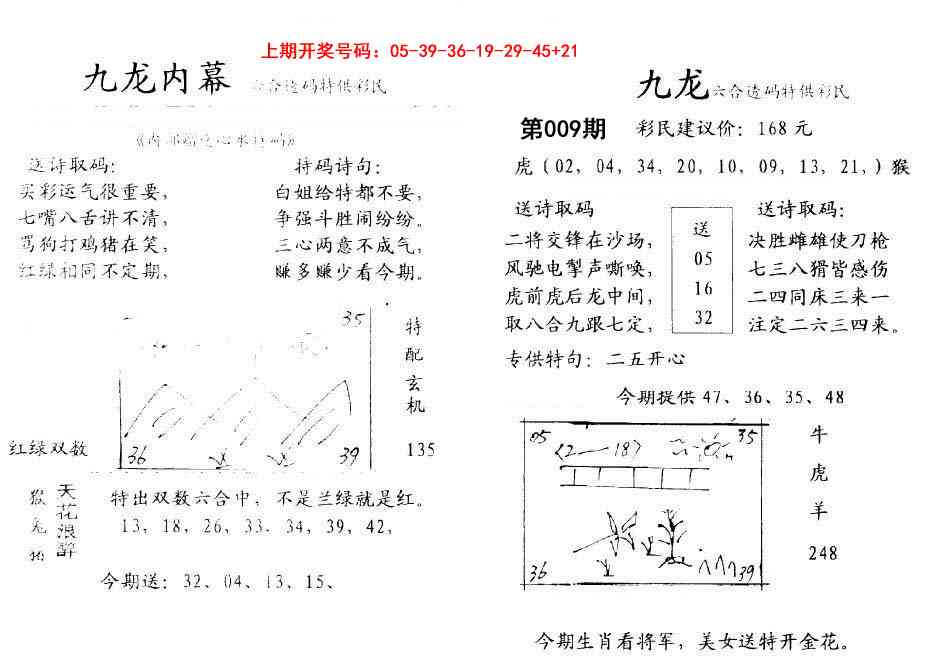 上期开奖号码：05-39-36-19-29-45+21
九龙内幕 六合透码特供彩民
送诗取码：
买彩运气很重要，
七嘴八舌讲不清，
骂狗打鸡猪在笑，
红绿相同不定期，
持码诗句：
白姐给特都不要，
争强斗胜闹纷纷。
三心两意不成气，
赚多赚少看今期。
35
36
39
特配玄机
135
红绿双数
猴
兔
天花浪醉
特出双数六合中，不是兰绿就是红。
13，18，26，33．34，39，42，
今期送：32、04、13、15、
九龙六合透码特供彩民
第009期 彩民建议价：168元
虎（02，04，34，20，10，09，13，21，）猴
送诗取码
二将交锋在沙场，
风驰电掣声嘶唤，
虎前虎后龙中间，
取八合九跟七定，
送
05
16
32
送诗取码：
决胜雌雄使刀枪
七三八猾皆感伤
二四同床三来一
注定二六三四来。
专供特句：二五开心
今期提供 47、36、35、48
05
35
36
39
牛
虎
羊
248
今期生肖看将军，美女送特开金花。